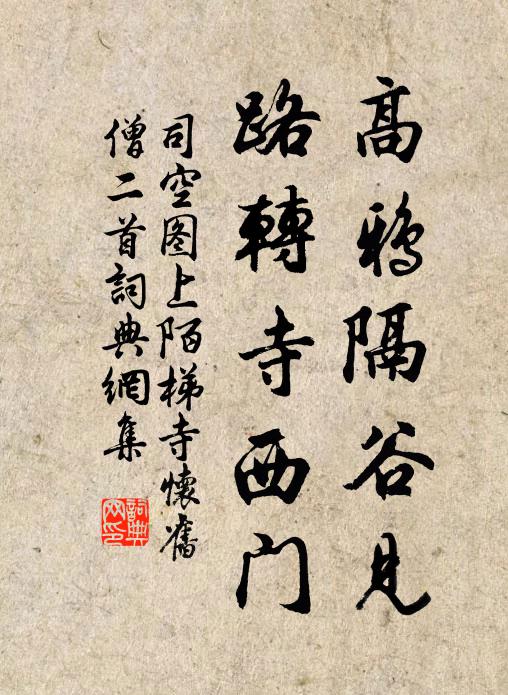 高鴉隔谷見
路轉寺西門
司空图上陌梯寺懷舊
僧二首詞典網集
詞典
网印